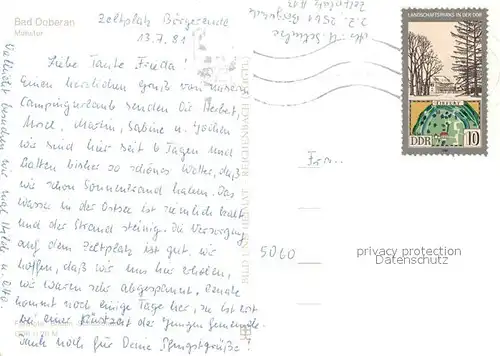 Bad Doberan
Münster
Zeltplatz Börgerende
13.7.81
Liebe Tante Frieda!
Einen herzlichen Gruß von unserem
Campingurlaub senden Dir Herbert,
Martin, Sabine u. Jochen
Wir sind hier seit 6 Tagen und
hatten bisher so schönes Wetter, daß
wir schon Sonnenbrand haben. Das
Wasser in der Ostsee ist ziemlich kalt
und der Strand steinig. Die Versorgung
auf dem Zeltplatz ist gut. Wir
hoffen, daß wir uns hier erholen,
wir waren sehr abgespannt. Renate
kommt noch einige Tage her, sie ist erst
bei einer Rüstzeit der Jungen Gemeinde.
Dank noch für Deine Pfingstgrüße!
Vielleicht besuchen wir mal Hilde u. Otto.
Zeltplatz
LANDSCHAFTSPARKS IN DER DDR
TIEFURT
DDR 10
Frau
5060
privacy protection
Datenschutz
BILD UND HEIMAT REICHENBACH